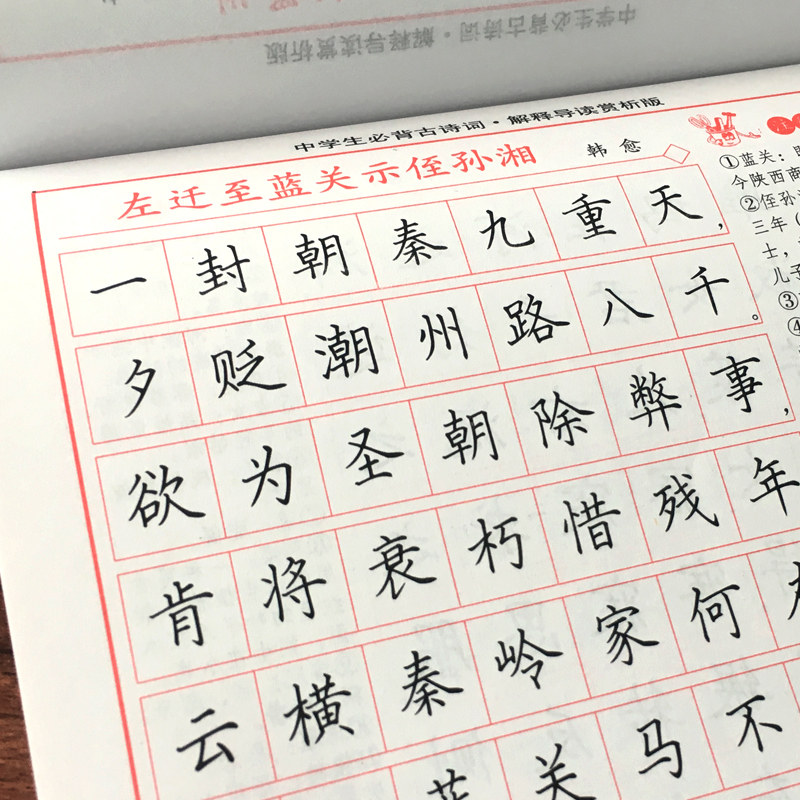 中学生必背古诗词·解释导读赏析版
左迁至蓝关示侄孙湘 韩愈
一封朝秦九重天，
夕贬潮州路八千。
欲为圣朝除弊事，
肯将衰朽惜残年
云横秦岭家何
蓝关马不
①蓝关：
今陕西商
②侄孙
三年（
士，
儿子
③
④